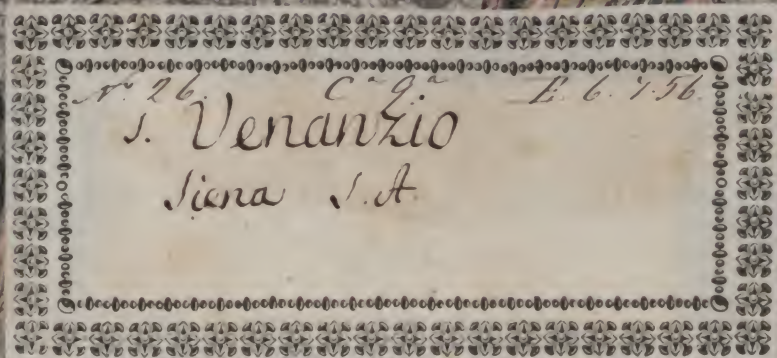 N.º 26. C.ª 9.ª E. 6. 7.56.
S. Venanzio
Siena S.A.